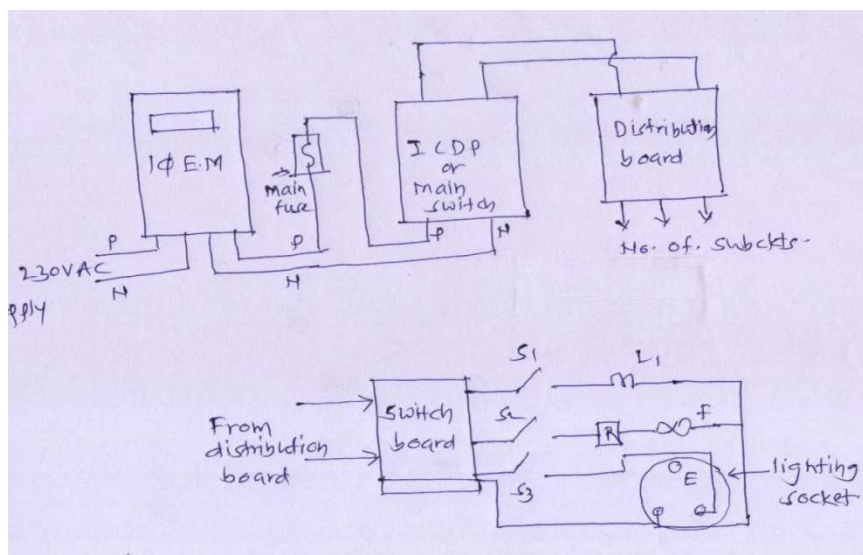 1Φ E.M
main
fuse
ICDP
or
main
switch
Distribution
board
P
N
P
N
P
N
230VAC
pply
No. of. Subckts.
From
distribution
board
Switch
board
S1
L1
S2
R
F
S3
E
lighting
socket